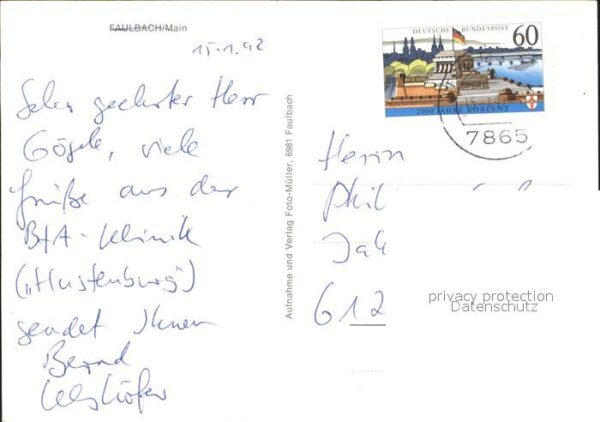 FAULBACH/Main
15.1.92
Sehr geehrter Herr
Gögele, viele
Grüße aus der
BfA-Klinik
("Hustenburg")
sendet Ihnen
Bernd
Aufnahme und Verlag Foto-Müller, 6981 Faulbach
DEUTSCHE BUNDESPOST
60
2000 JAHRE KOBLENZ
7865
Herrn
Phil
Jak
612
privacy protection
Datenschutz